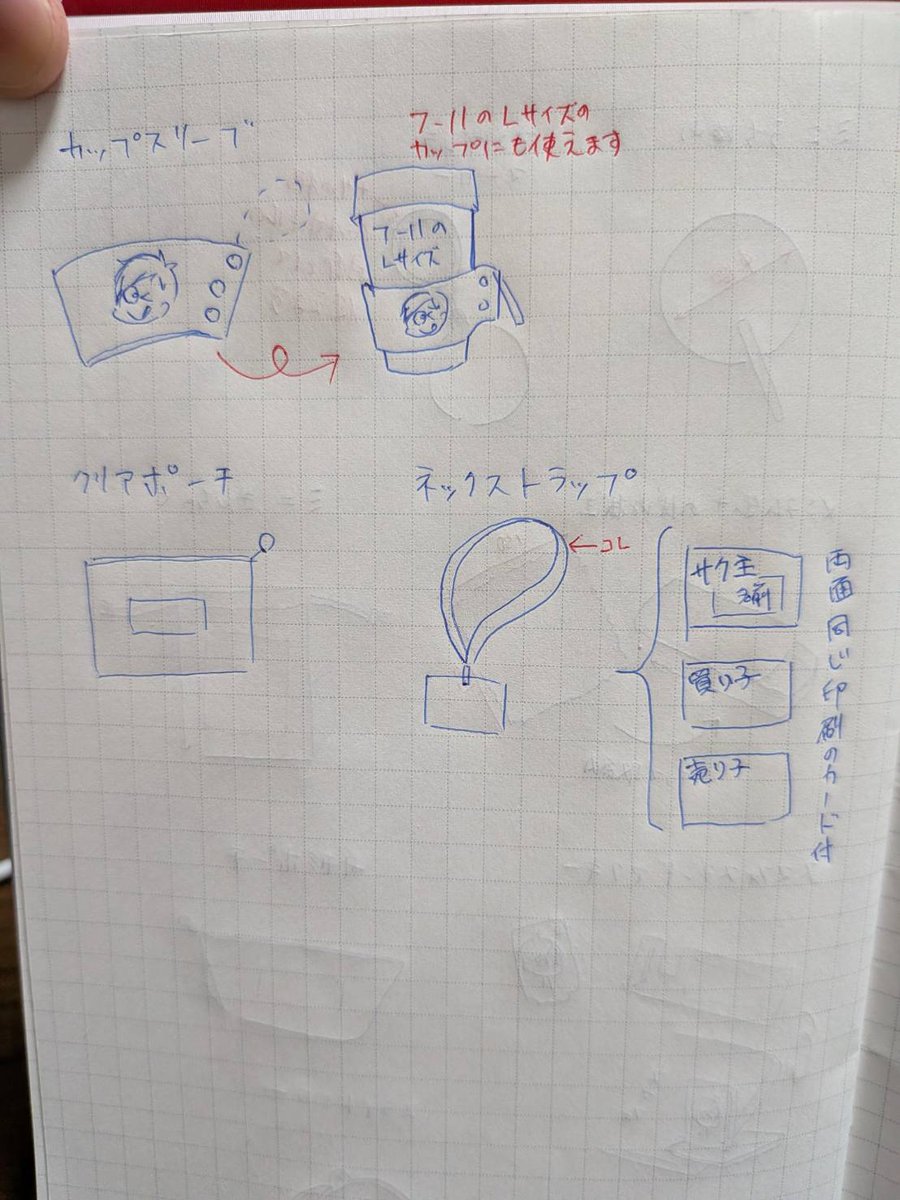 カップスリーブ
7-11のLサイズの
カップにも使えます
7-11の
Lサイズ
クリアポーチ
ネックストラップ
←コレ
サク主
名前
買い子
売り子
両面同じ印刷のカード付